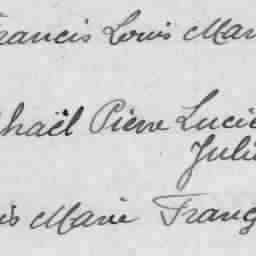 rancis Louis Mar
haël Pierre Lucie
Julie
is Marie Franç